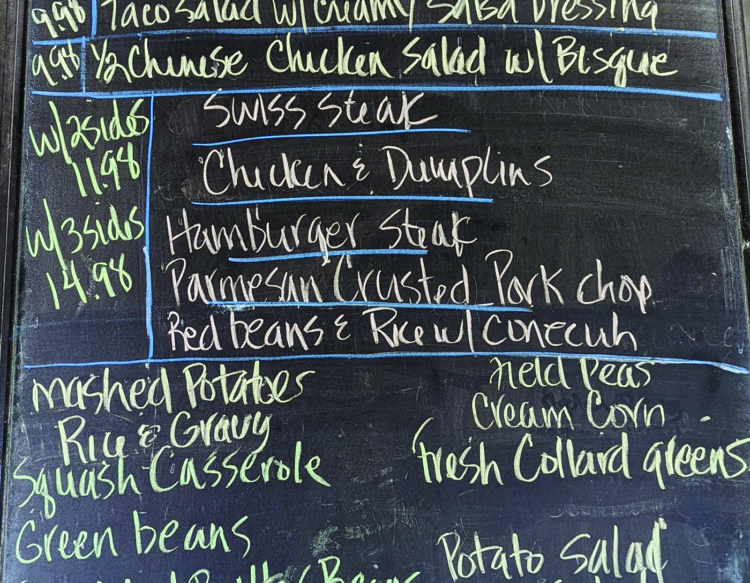 9.98 Taco Salad w/ Creamy Salsa Dressing
9.98 1/2 Chinese Chicken Salad w/ Bisque
w/2sides
11.98
w/3sides
14.98
Swiss Steak
Chicken & Dumplins
Hamburger Steak
Parmesan Crusted Pork chop
Red beans & Rice w/ conecuh
mashed Potatoes
Rice & Gravy
Squash Casserole
Green beans
Field Peas
Cream Corn
Fresh Collard greens
Potato Salad
Beans